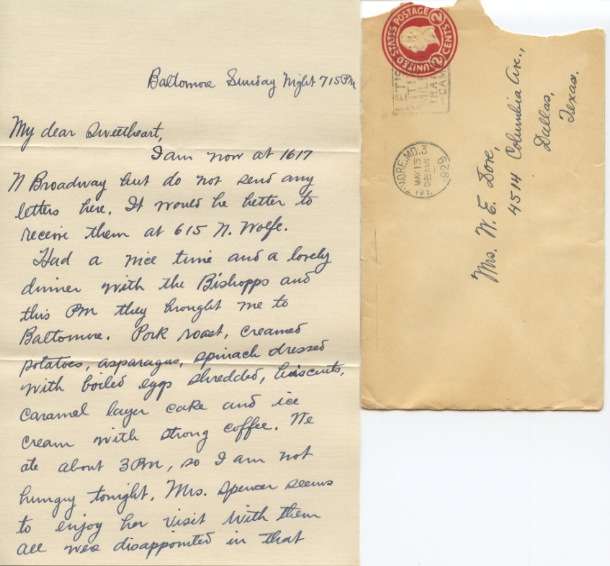 Baltomore Sunday Night 715PM
My dear Sweetheart,
I am now at 1617
N Broadway but do not send any
letters here. It would be better to
receive them at 615 N. Wolfe.
Had a nice time and a lovely
dinner with the Bishopps and
this PM they brought me to
Baltomore. Pork roast, creamed
potatoes, asparagus, spinach dressed
with boiled eggs shredded, biscuits,
caramel layer cake and ice
cream with strong coffee. We
ate about 3PM, so I am not
hungry tonight. Mrs. Spencer seems
to enjoy her visit with them
all was disappointed in that
UNITED STATES POSTAGE
2 CENTS 2
MORE, MD.
MAY 13
1929
Mrs. W. E. Dore,
4514 Columbia Av.,
Dallas,
Texas.